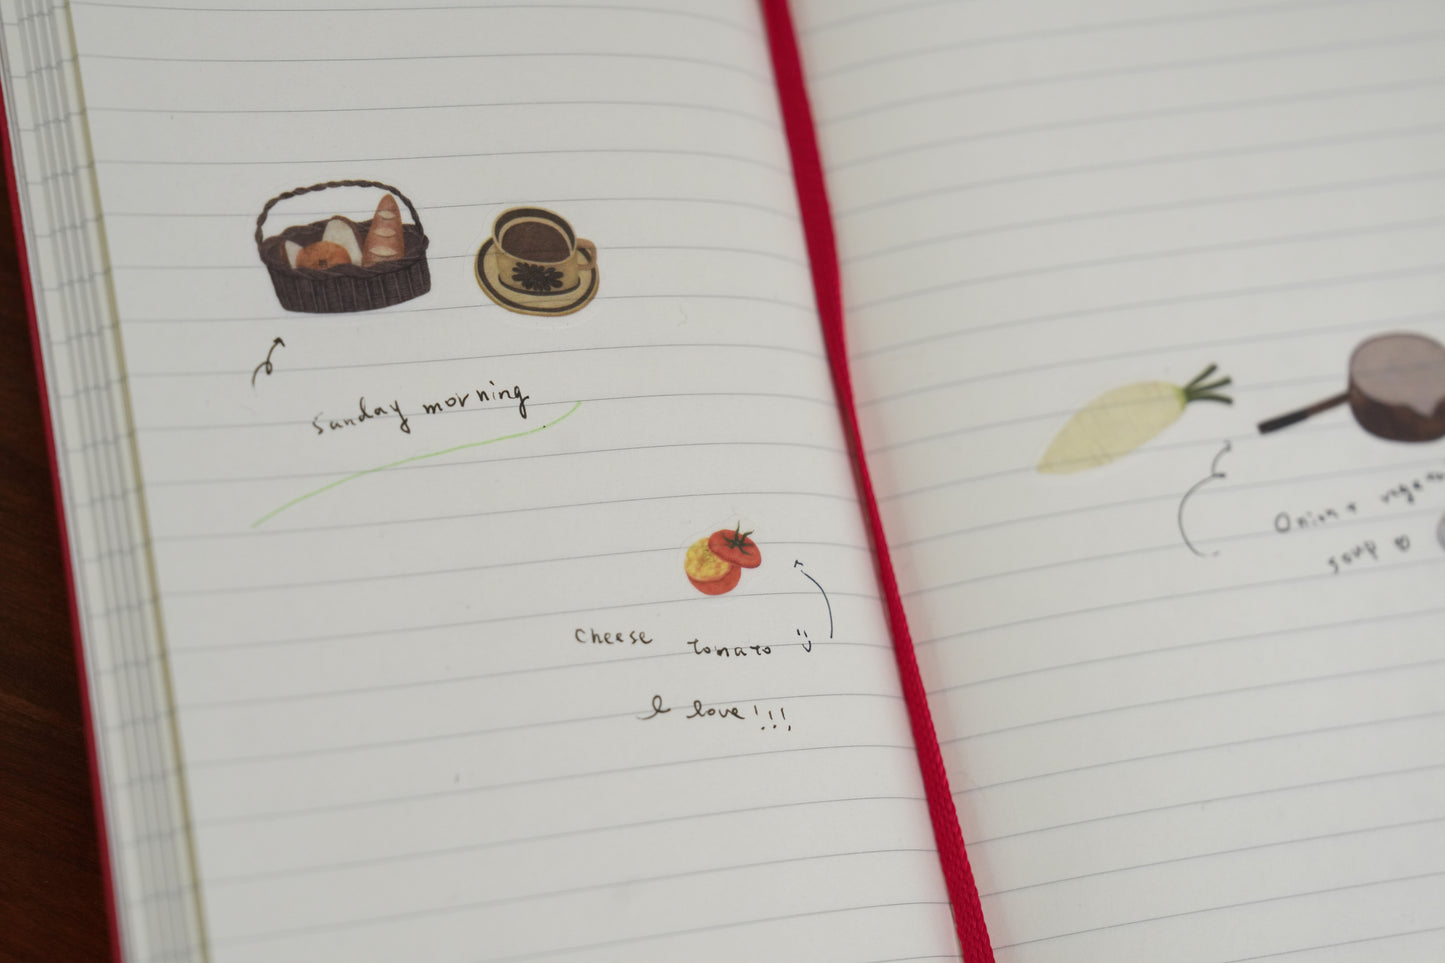 Sunday morning
Cheese tomato
I love!!!
Onion
soup